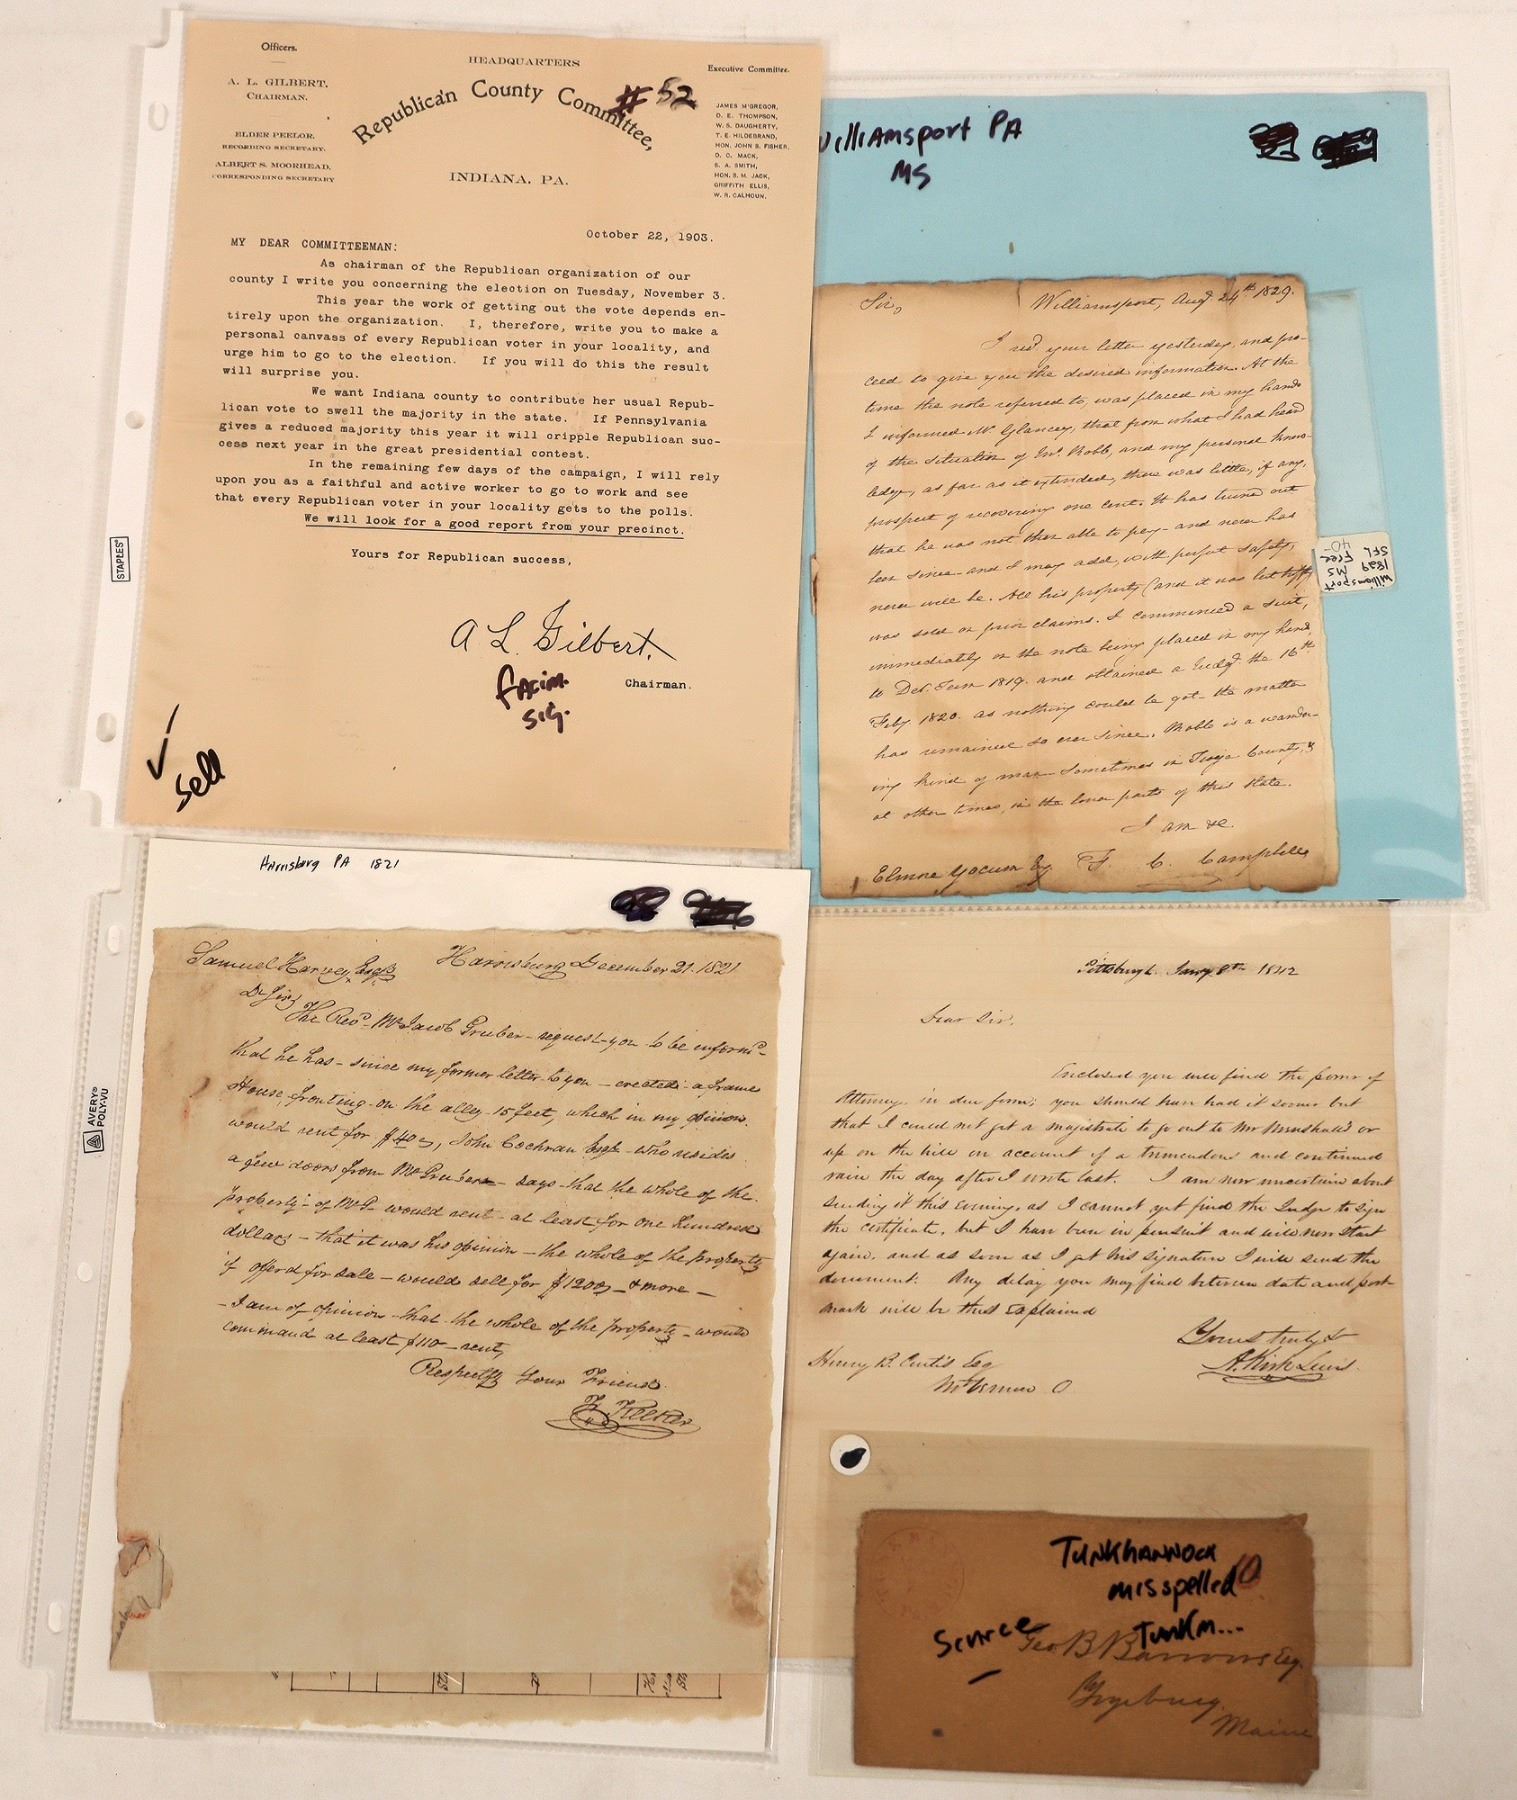 Officers.
A. L. GILBERT,
CHAIRMAN.
ELDER PEELOR,
RECORDING SECRETARY.
ALBERT S. MOORHEAD,
CORRESPONDING SECRETARY
HEADQUARTERS
Republican County Committee,
# 52
INDIANA, PA.
Executive Committee.
JAMES M'GREGOR,
D. E. THOMPSON,
W. S. DAUGHERTY,
T. E. HILDEBRAND,
HON. JOHN S. FISHER,
D. C. MACK,
S. A. SMITH,
HON. S. M. JACK,
GRIFFITH ELLIS,
W. R. CALHOUN,
October 22, 1903.
MY DEAR COMMITTEEMAN:
As chairman of the Republican organization of our
county I write you concerning the election on Tuesday, November 3.
This year the work of getting out the vote depends en-
tirely upon the organization. I, therefore, write you to make a
personal canvass of every Republican voter in your locality, and
urge him to go to the election. If you will do this the result
will surprise you.
We want Indiana county to contribute her usual Repub-
lican vote to swell the majority in the state. If Pennsylvania
gives a reduced majority this year it will cripple Republican suc-
cess next year in the great presidential contest.
In the remaining few days of the campaign, I will rely
upon you as a faithful and active worker to go to work and see
that every Republican voter in your locality gets to the polls.
We will look for a good report from your precinct.
Yours for Republican success,
A L Gilbert.
Chairman.
facim.
sig.
Sell
STAPLES
Williamsport PA
MS
Sir, Williamsport, Augt. 24th 1829.
I recd your letter yesterday, and pro-
ceed to give you the desired information. At the
time the note referred to, was placed in my hands
I informed Mr. Glancey, that from what I had heard
of the situation of Jno. Robb, and my personal know-
ledge, as far as it extended, there was little, if any,
prospect of recovering one cent. It has turned out
that he was not then able to pay - and never has
been since - and I may add, with perfect safety,
never will be. All his property (and it was but
was sold on prior claims. I commenced a suit,
immediately on the note being placed in my hand,
to Dec. Term 1819. and obtained a Judgt. the 16th
Feby. 1820. as nothing could be got - the matter
has remained so ever since. Robb is a wander-
ing kind of man - sometimes in Tioga County, &
at other times, in the lower parts of this State.
I am &c.
Elmore Yocum Esq F. C. Campbell
Williamsport
MS
1829
Free
SFL
40-
Harrisburg PA 1821
Samuel Harvey Esqr Harrisburg December 21. 1821
Dr Sir,
The Revd. Mr Jacob Gruber - request - you to be informd -
that he has - since my former letter to you - erected - a frame
House, fronting - on the alley - 15 feet, which in my opinion.
would rent for $40, John Cochran Esqr - who resides
a few doors from Mr Grubers - says - that the whole of the
property - of Mr G - would rent - at least for one hundred
dollars - that it was his opinion - the whole of the property
if offerd for sale - would sell for $1200 - & more -
- I am of opinion - that the whole of the property - would
command at least $110 - rent,
Respectfy Your Friend
Keeker
AVERY
POLY-VU
Pittsburgh Jany 8th 1842
Dear Sir,
Enclosed you will find the power of
Attorney in due form; you should have had it sooner but
that I could not get a magistrate to go out to Mr Marshall's or
up on the hill on account of a tremendous and continued
rain the day after I wrote last. I am now uncertain about
sending it this evening, as I cannot yet find the Judge to sign
the certificate, but I have been in pursuit and will now start
again, and as soon as I get his signature I will send the
document. Any delay you may find between date and post
mark will be thus explained
Yours truly &
A. Kirk Lewis
Henry B. Curtis Esq
Mt Vernon O
Tunkhannock
misspelled
Tunkm...
Scarce
10
Geo B Barrows Esq.
Fryeburg
Maine